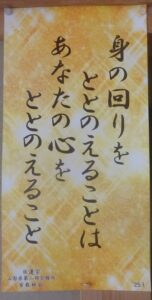 身の回りを
ととのえることは
あなたの心を
ととのえること